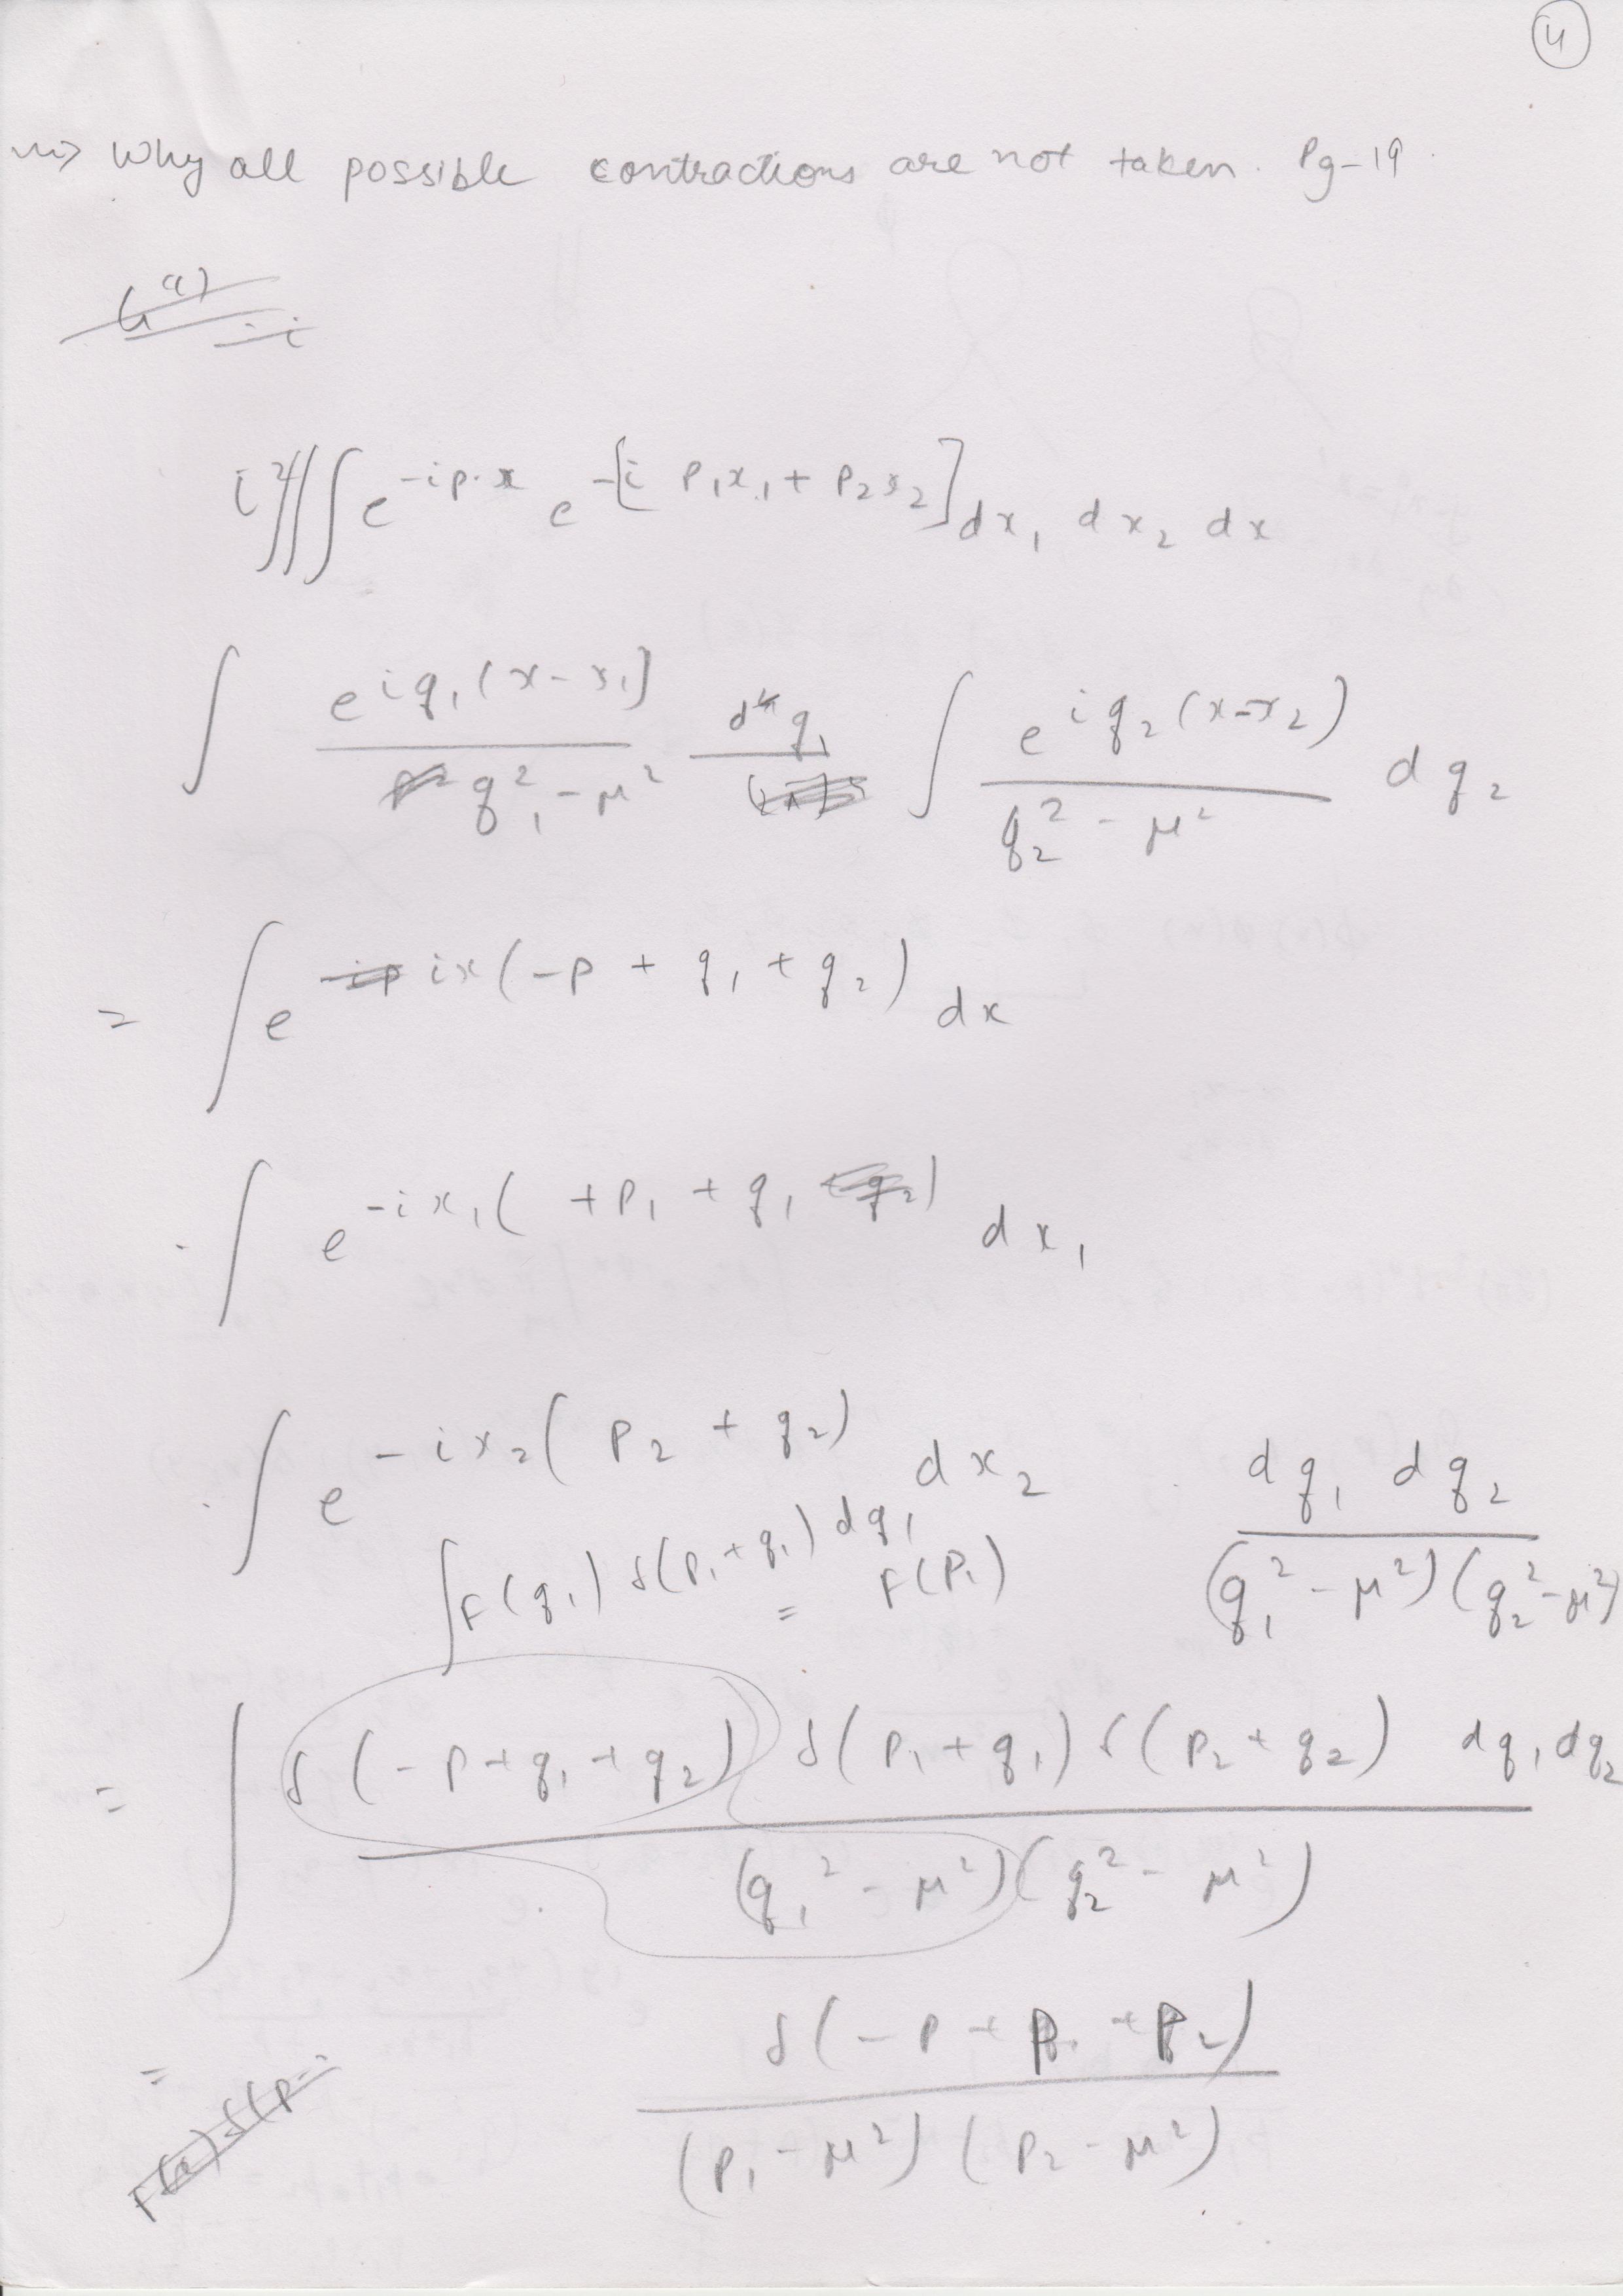 4
⇝ Why all possible contractions are not taken. Pg-19.
G⁽⁴⁾
= i
i² ∫∫∫ e^{-ip·x} e^{-[i p₁x₁ + p₂x₂]} dx₁ dx₂ dx
∫ e^{iq₁(x-x₁)} / (q₁² - μ²) d⁴q₁ ∫ e^{iq₂(x-x₂)} / (q₂² - μ²) dq₂
= ∫ e^{ix(-p + q₁ + q₂)} dx
· ∫ e^{-ix₁(+p₁ + q₁)} dx₁
· ∫ e^{-ix₂(p₂ + q₂)} dx₂ dq₁ dq₂ / (q₁² - μ²)(q₂² - μ²)
∫ F(q₁) δ(p₁ + q₁) dq₁ = F(p₁)
= ∫ δ(-p + q₁ + q₂) δ(p₁ + q₁) δ(p₂ + q₂) dq₁ dq₂ / (q₁² - μ²)(q₂² - μ²)
= δ(-p + p₁ + p₂) / (p₁ - μ²)(p₂ - μ²)